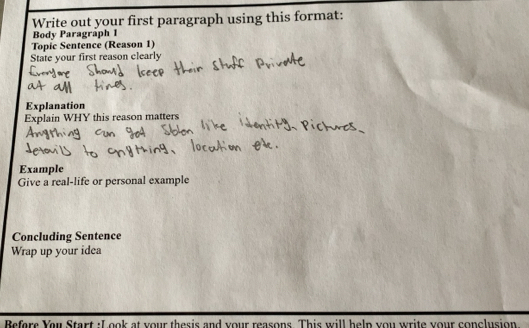 Write out your first paragraph using this format:
Body Paragraph 1
Topic Sentence (Reason 1)
State your first reason clearly
Everyone Should keep their Stuff Private
at all times.
Explanation
Explain WHY this reason matters
Anything can get Stolen like identity, Pictures,
details to anything, location etc.
Example
Give a real-life or personal example
Concluding Sentence
Wrap up your idea
Before You Start :Look at your thesis and your reasons. This will help you write your conclusion